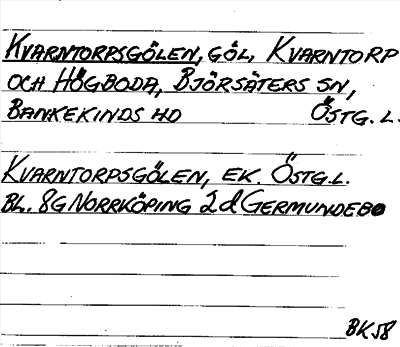 KVARNTORPSGÖLEN, GÖL, KVARNTORP
OCH HÖGBODA, BJÖRSÄTERS SN,
BANKEKINDS HD ÖSTG. L.
KVARNTORPSGÖLEN, EK. ÖSTG.L.
BL. 8G NORRKÖPING 2d GERMUNDEBO
BK58